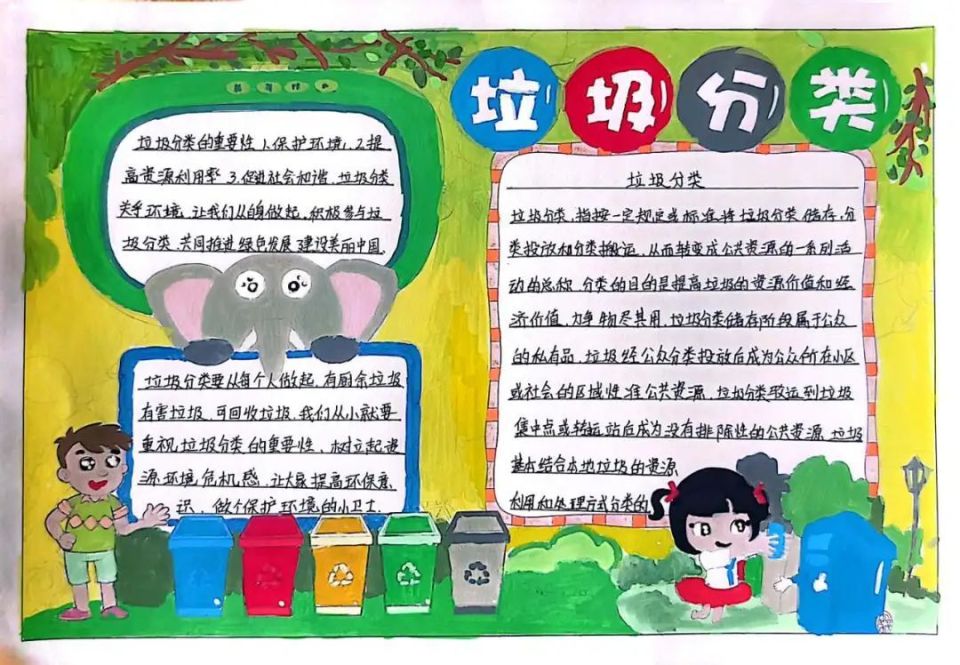 垃圾分类
垃圾分类的重要性 1.保护环境, 2.提
高资源利用率 3.促进社会和谐. 垃圾分类
关乎环境, 让我们从自身做起, 积极参与垃
圾分类, 共同推进绿色发展 建设美丽中国.
垃圾分类要从每个人做起, 有厨余垃圾
有害垃圾, 可回收垃圾, 我们从小就要
重视垃圾分类的重要性, 树立起资
源环境危机感, 让大家提高环保意
识, 做个保护环境的小卫士.
垃圾分类
垃圾分类, 指按一定规定或标准将垃圾分类储存, 分
类投放和分类搬运, 从而转变成公共资源的一系列活
动的总称. 分类的目的是提高垃圾的资源价值和经
济价值, 力争物尽其用. 垃圾分类储存阶段属于公众
的私有品, 垃圾经公众分类投放后成为公众所在小区
或社会的区域性准公共资源, 垃圾分类驳运到垃圾
集中点或转运站后成为没有排除性的公共资源. 垃圾
基本结合本地垃圾的资源
利用和处理方式分类的